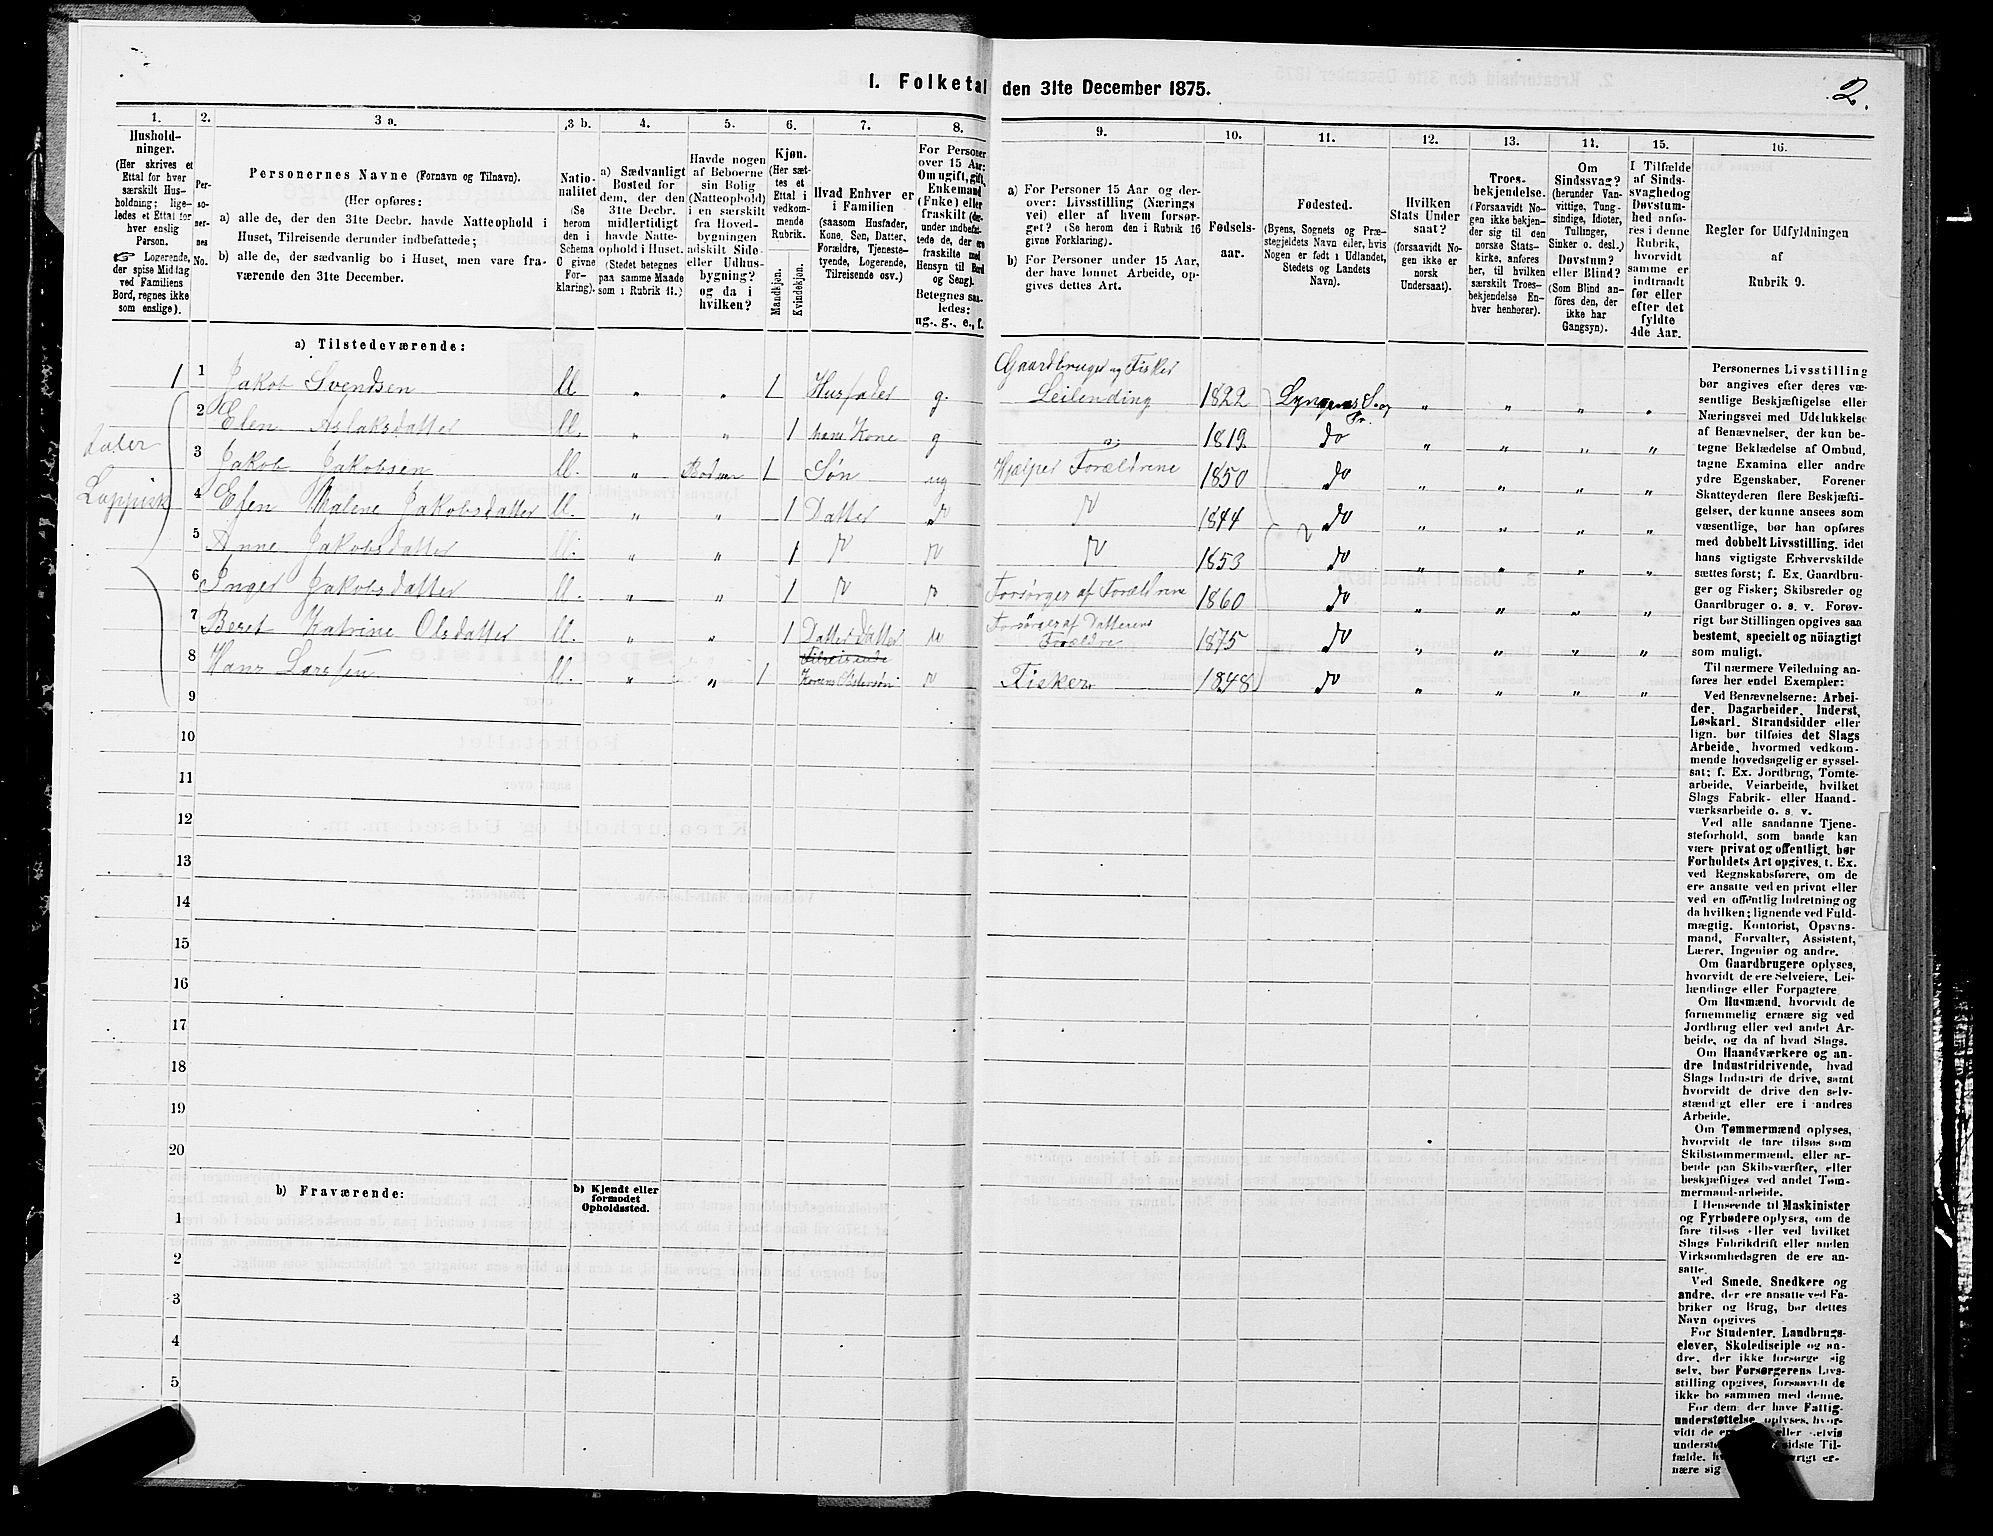 I. Folketal den 31te December 1875.
2.
1.
Hushold-
ninger.
(Her skrives et
Ettal for hver
særskilt Hus-
holdning; lige-
ledes et Ettal for
hver enslig
Person.
☞ Logerende,
der spise Middag
ved Familiens
Bord, regnes ikke
som enslige).
2.
Per-
so-
ner-
nes
No.
3 a.
Personernes Navne (Fornavn og Tilnavn).
(Her opføres:
a) alle de, der den 31te Decbr. havde Natteophold i
Huset, Tilreisende derunder indbefattede;
b) alle de, der sædvanlig bo i Huset, men vare fra-
værende den 31te December.
3 b.
Natio-
nalitet
(Se
herom
den i
Schema
C givne
For-
klaring).
4.
a) Sædvanligt
Bosted for
dem, der den
31te Decbr.
midlertidigt
havde Natte-
ophold i Huset.
(Stedet betegnes
paa samme Maade
som i Rubrik 11.)
5.
Havde nogen
af Beboerne
sin Bolig
(Natteophold)
i en særskilt
fra Hoved-
bygningen
adskilt Side-
eller Udhus-
bygning?
og da i
hvilken?
6.
Kjøn.
(Her sæt-
tes et
Ettal i
vedkom-
mende
Rubrik.
Mandkjøn.
Kvindekjøn.
7.
Hvad Enhver er
i Familien
(saasom Husfader,
Kone, Søn, Datter,
Forældre, Tjeneste-
tyende, Logerende,
Tilreisende osv.)
8.
For Personer
over 15 Aar:
Om ugift, gift,
Enkemand
(Enke) eller
fraskilt (der-
under indbefat-
tede de, der ere
fraskilte med
Hensyn til Bord
og Seng).
Betegnes saa-
ledes:
ug., g., e., f.
9.
a) For Personer 15 Aar og der-
over: Livsstilling (Nærings
vei) eller af hvem forsør-
get? (Se herom den i Rubrik 16
givne Forklaring).
b) For Personer under 15 Aar,
der have lønnet Arbeide, op-
gives dettes Art.
10.
Fødsels-
aar.
11.
Fødested.
(Byens, Sognets og Præ-
stegjeldets Navn eller, hvis
Nogen er født i Udlandet,
Stedets og Landets
Navn).
12.
Hvilken
Stats Under
saat?
(forsaavidt No-
gen ikke er
norsk
Undersaat).
13.
Troes-
bekjendelse.
(Forsaavidt No-
gen ikke bekjen-
der sig til den
norske Stats-
kirke, anføres
her, til hvilken
særskilt Troes-
bekjendelse En-
hver henhører).
14.
Om
Sindssvag?
(herunder Van-
vittige, Tung-
sindige, Idioter,
Tullinger,
Sinker o. desl.)
Døvstum?
eller Blind?
(Som Blind an-
føres den, der
ikke har
Gangsyn).
15.
I Tilfælde
af Sinds-
svaghed og
Døvstum-
hed anfø-
res i denne
Rubrik,
hvorvidt
samme er
indtraadt
før eller
efter det
fyldte
4de Aar.
16.
Regler for Udfyldningen
af
Rubrik 9.
a) Tilstedeværende:
1 1 Jakob Svendsen ll " " 1 Husfader g. Gaardbruger og Fisker Leilending 1822 Lyngens S. og Pr. " " " "
2 Elen Aslaksdatter ll. " " 1 hans Kone g 1819 do " " " "
3 Jakob Jakobsen ll. " 1 Søn ug Hjælper Forældrene 1850 do " " " "
taler Lappisk
4 Elen Malene Jakobsdatter ll. " " 1 Datter do do 1844 do " " " "
5 Anne Jakobsdatter ll. " " 1 do do do 1853 do " " " "
6 Inger Jakobsdatter ll. " " 1 do do Forsørges af Forældrene 1860 do " " " "
7 Beret Katrine Olsdatter ll. " " 1 Datter Datter do Forsørges af Datterens Forældre 1875 do " " " "
8 Hans Larssen ll. " " 1 Tilreisende Konens Søstersøn do Fisker 1848 do " " " "
9
10
11
12
13
14
15
16
17
18
19
20
b) Fraværende:
b) Kjendt eller
formodet
Opholdssted.
1
2
3
4
5
Personernes Livsstilling
bør angives efter deres væ-
sentlige Beskjæftigelse eller
Næringsvei med Udelukkelse
af Benævnelser, der kun be-
tegne Beklædelse af Ombud,
tagne Examina eller andre
ydre Egenskaber. Forener
Skatteyderen flere Beskjæfti-
gelser, der kunne ansees som
væsentlige, bør han opføres
med dobbelt Livsstilling, idet
hans vigtigste Erhvervskilde
sættes først; f. Ex. Gaardbru-
ger og Fisker; Skibsreder og
Gaardbruger o. s. v. Forøv-
rigt bør Stillingen opgives saa
bestemt, specielt og nöiagtigt
som muligt.
Til nærmere Veiledning an-
føres her endel Exempler:
Ved Benævnelserne: Arbei-
der, Dagarbeider, Inderst,
Løskarl, Strandsidder eller
lign. bør tilføies det Slags
Arbeide, hvormed vedkom-
mende hovedsagelig er syssel-
sat; f. Ex. Jordbrug, Tomte-
arbeide, Veiarbeide, hvilket
Slags Fabrik- eller Haand-
værksarbeide o. s. v.
Ved alle saadanne Tjene-
steforhold, som baade kan
være privat og offentligt, bør
Forholdets Art opgives, t. Ex.
ved Regnskabsførere, om de
ere ansatte ved en privat eller
ved en offentlig Indretning og
da hvilken; lignende ved Fuld-
mægtig, Kontorist, Opsyns-
mand, Forvalter, Assistent,
Lærer, Ingeniør og andre.
Om Gaardbrugere oplyses,
hvorvidt de ere Selveiere, Lei-
lændinge eller Forpagtere
Om Husmænd, hvorvidt de
fornemmelig ernære sig ved
Jordbrug eller ved andet Ar-
beide, og da af hvad Slags.
Om Haandværkere og an-
dre Industridrivende, hvad
Slags Industri de drive, samt
hvorvidt de drive den selv-
stændigt eller ere i andres
Arbeide.
Om Tømmermænd oplyses,
hvorvidt de fare tilsøs som
Skibstømmermænd, eller ar-
beide paa Skibsværfter, eller
beskjæftiges ved andet Tøm-
mermandsarbeide.
I Henseende til Maskinister
og Fyrbødere oplyses, om de
fare tilsøs eller ved hvilket
Slags Fabrikdrift eller anden
Virksomhedsgren de ere an-
satte.
Ved Smede, Snedkere og
andre, der ere ansatte ved Fa-
briker og Brug, bør dettes
Navn opgives
For Studenter, Landbrugs-
elever, Skoledisciple og an-
dre, der ikke forsørge sig
selv, bør Forsørgerens Livs-
stilling opgives, forsaavidt de
ikke bo sammen med denne.
For dem, der have Fattig-
understøttelse, oplyses, hvor-